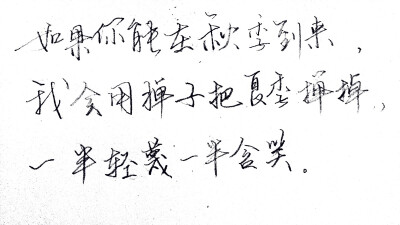 如果你能在秋季到来，
我会用掸子把夏季掸掉，
一半轻蔑一半含笑。